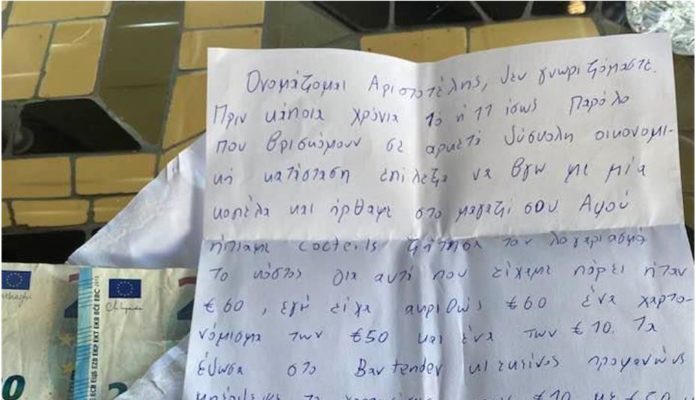 Ονομάζομαι Αριστοτέλης, δεν γνωριζόμαστε.
Πριν κάποια χρόνια 10 ή 11 ίσως παρόλο
που βρισκόμουν σε αρκετά δύσκολη οικονομι-
κή κατάσταση επίλεξα να βγω με μία
κοπέλα και ήρθαμε στο μαγαζί σου. Αφού
ήπιαμε cocteils ζήτησα τον λογαριασμό
το κόστος για αυτά που είχαμε πάρει ήταν
€60, εγώ είχα ακριβώς €60 ένα χαρτο-
νόμισμα των €50 και ένα των €10. Τα
έδωσα στο Bartender κι εκείνος προφανώς
μπέρδεψε το €10 με €50
BCE ECB ЕЦБ EZB EKP EKT EKB BĊE EBC